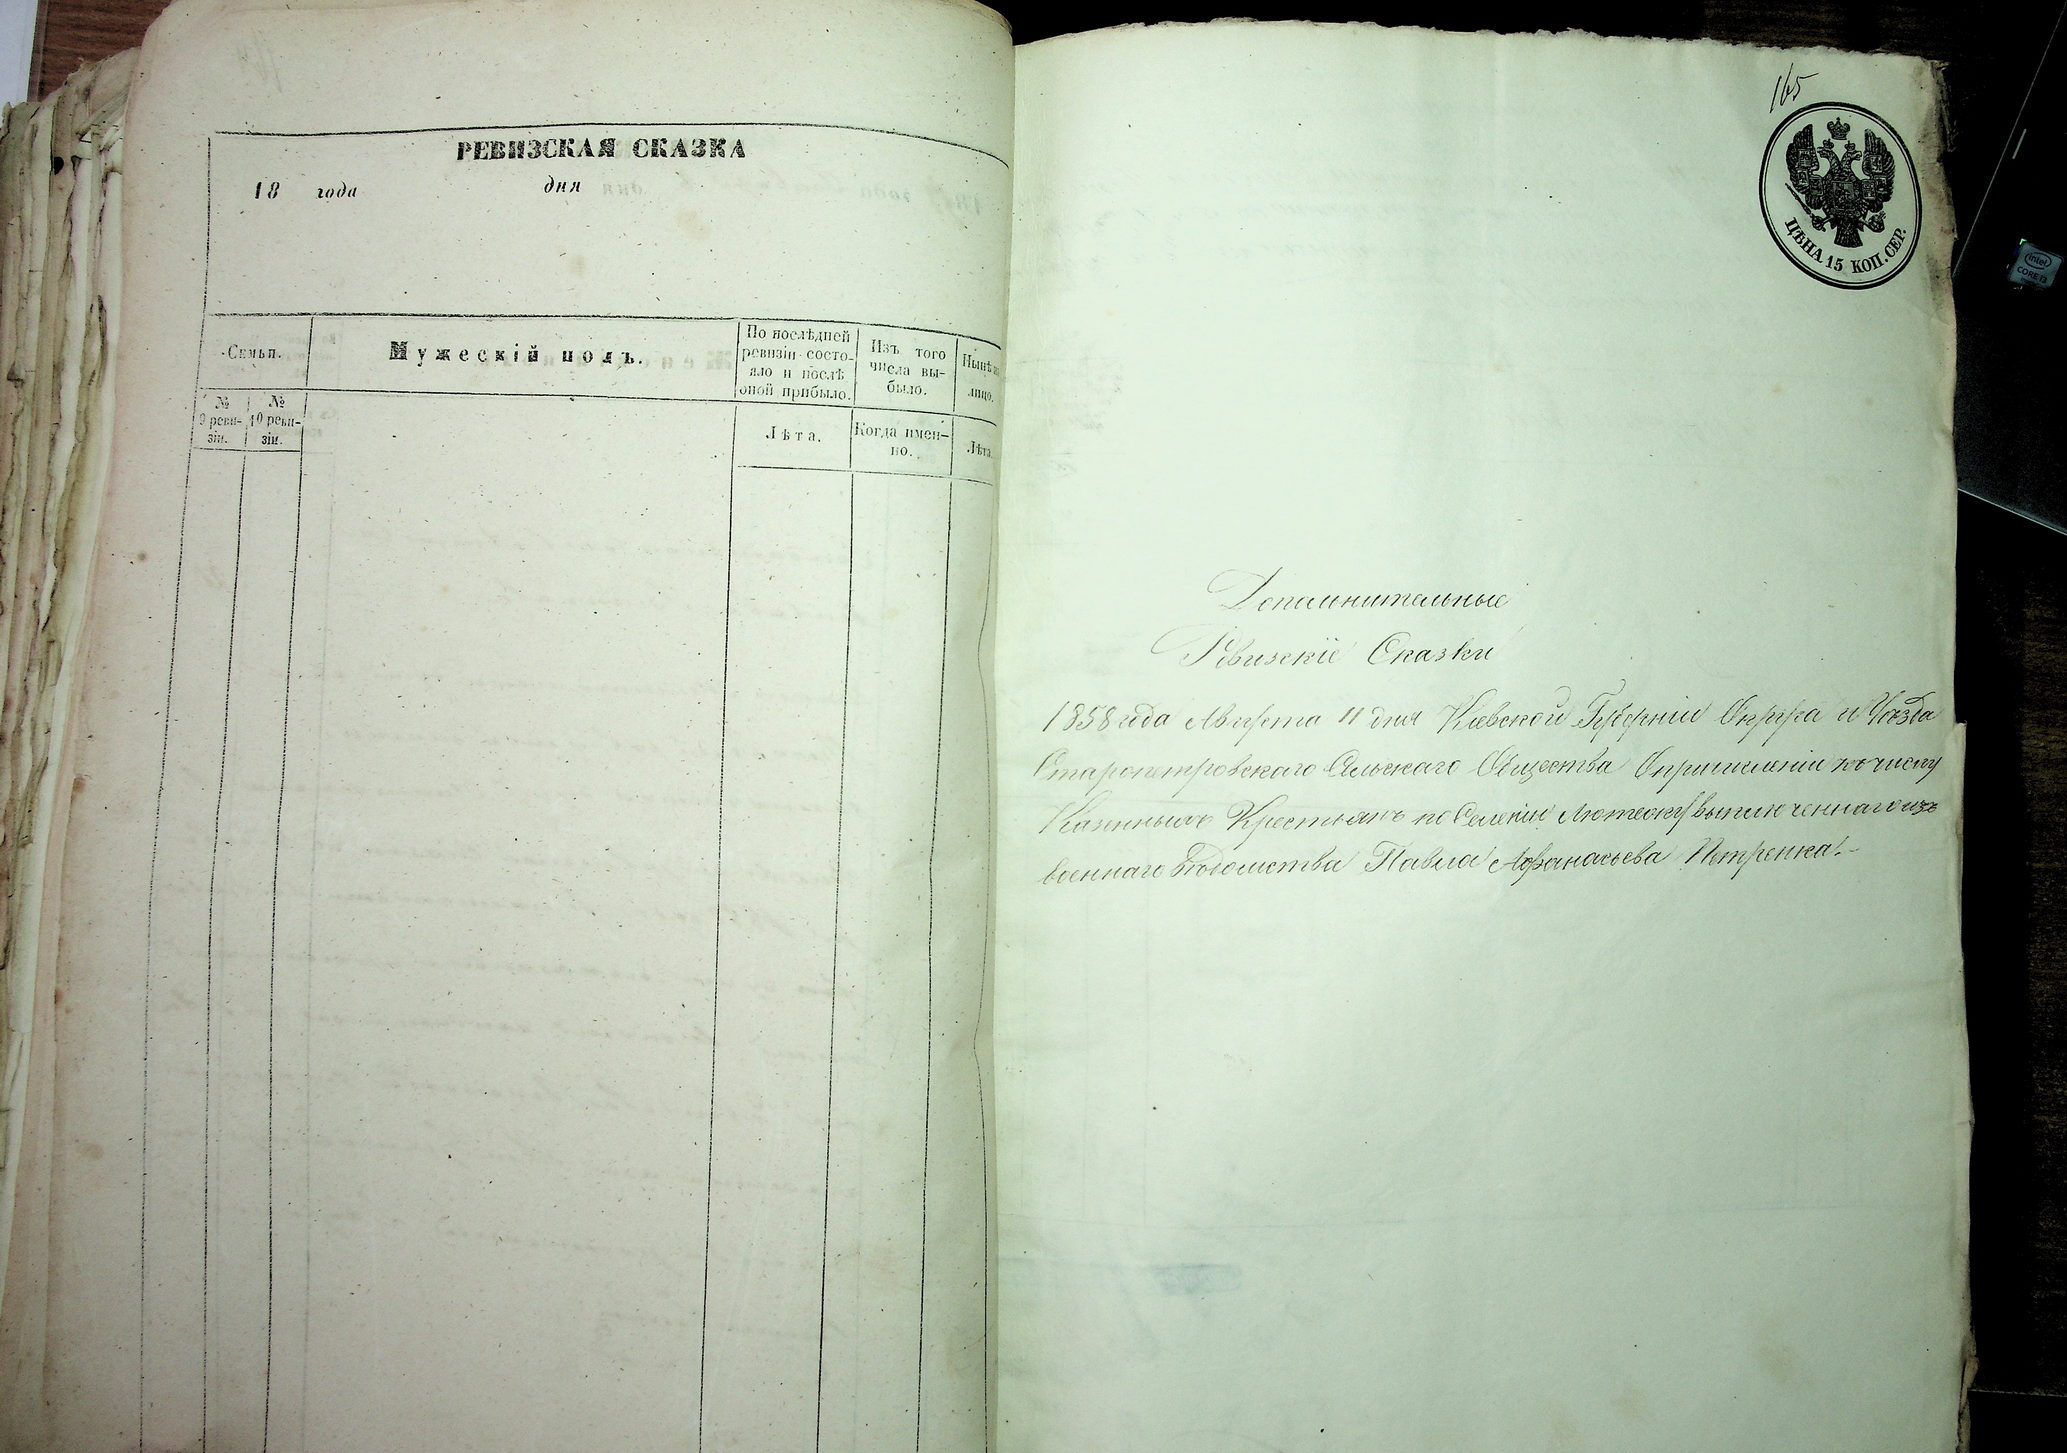 РЕВИЗСКАЯ СКАЗКА
18 года дня
Семьи.
Мужескій полъ.
По послѣдней
ревизіи состо-
яло и послѣ
оной прибыло.
Изъ того
числа вы-
было.
Нынѣ
лицо.
№
9 реви-
зіи.
№
10 реви-
зіи.
Лѣта.
Когда имен-
но.
Лѣта.
165
ЦѢНА 15 КОП. СЕР.
Дополнительные
Ревизскіе Сказки
1858 года Августа 11 дня Кіевской Губерніи Округа и Уѣзда
Старопетровскаго Сельскаго Общества О причисленіи къ числу
Казенныхъ Крестьянъ по Селенію Лютежу выключеннаго изъ
военнаго вѣдомства Павла Афанасьева Петренка.
intel
CORE i3